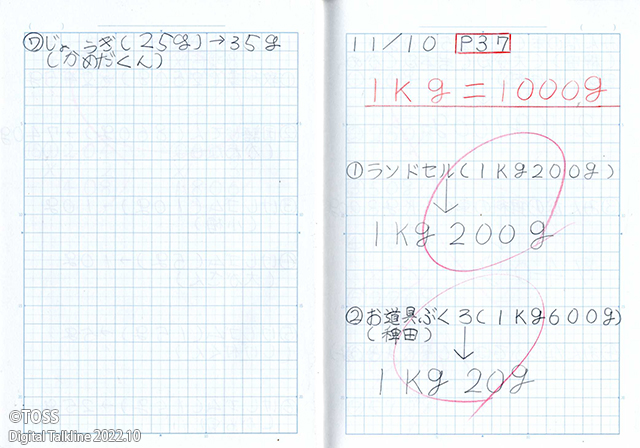 ⑦じょうぎ(25g)→35g
(かめだくん)
11/10 P37
1Kg=1000g
①ランドセル(1Kg200g)
↓
1Kg 200g
②お道具ぶくろ(1Kg600g)
(稗田)
↓
1Kg 20g
©TOSS
Digital Talkline 2022.10